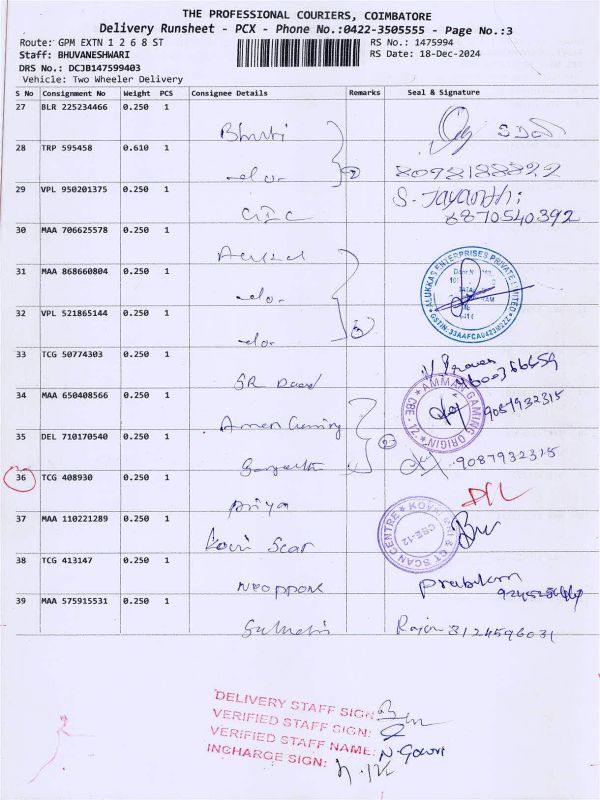 THE PROFESSIONAL COURIERS, COIMBATORE
Delivery Runsheet - PCX - Phone No.:0422-3505555 - Page No.:3
Route: GPM EXTN 1 2 6 8 ST
RS No.: 1475994
Staff: BHUVANESHWARI
RS Date: 18-Dec-2024
DRS No.: DCJB147599403
Vehicle: Two Wheeler Delivery
S No Consignment No Weight PCS Consignee Details Remarks Seal & Signature
27 BLR 225234466 0.250 1
28 TRP 595458 0.610 1
-do-
8092188822
29 VPL 950201375 0.250 1
S. Jayanthi
6870540392
30 MAA 706625578 0.250 1
31 MAA 868660804 0.250 1
-do-
ALUKKAS ENTERPRISES PRIVATE LIMITED
GSTIN:33AAFCA0423M3ZZ
32 VPL 521865144 0.250 1
-do-
3
33 TCG 50774303 0.250 1
34 MAA 650408566 0.250 1
AMMAN GAMING ORIGIN
CBE-12
9087932315
35 DEL 710170540 0.250 1
2
9087932315
36 TCG 408930 0.250 1
Priya
37 MAA 110221289 0.250 1
Kovai Scan
KOVAI MRI & CT SCAN CENTRE
CBE-12
38 TCG 413147 0.250 1
39 MAA 575915531 0.250 1
Rajan 3124596031
DELIVERY STAFF SIGN:
VERIFIED STAFF SIGN:
VERIFIED STAFF NAME: N. Gowri
INCHARGE SIGN: